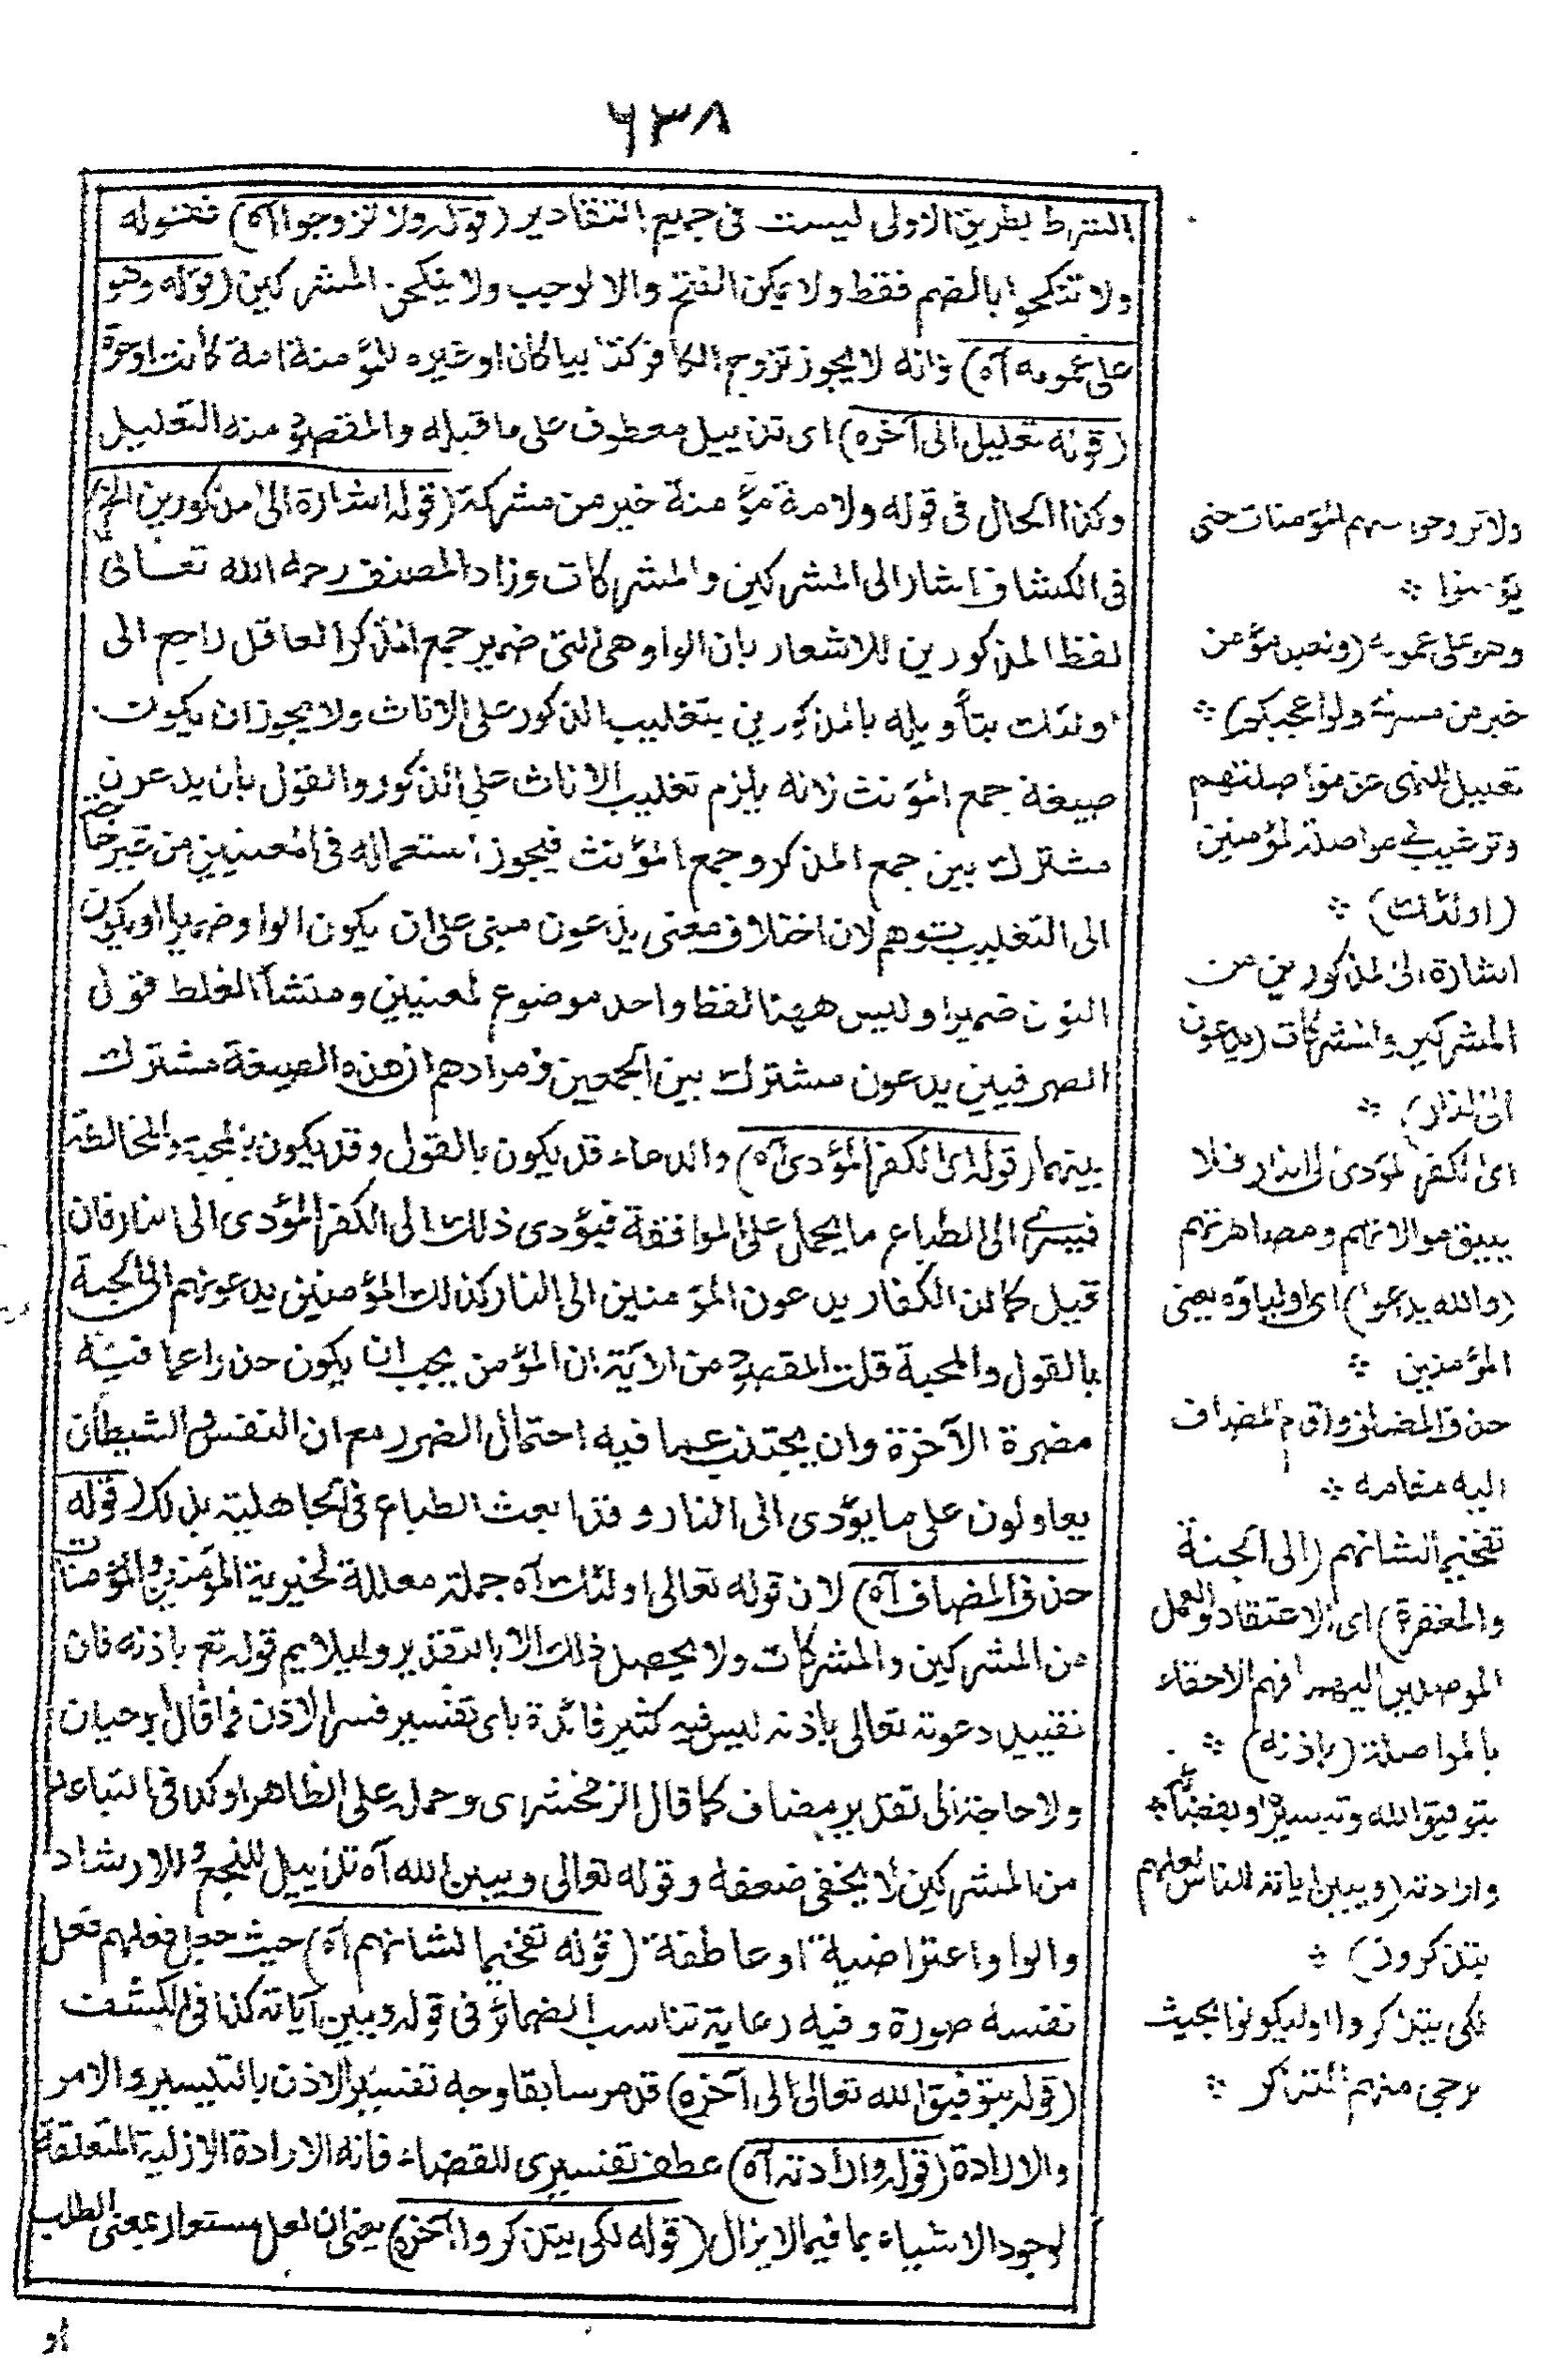 ٦٣٨
الشرط بطريق الاولى ليست فى جميع التقادير (قوله ولا تزوجوا آه) فقوله
ولا تنكحوا بالضم فقط ولا يمكن الفتح والا لوجب ولا ينكحن المشركين (قوله وهو
على عمومه آه) فانه لا يجوز تزوج الكافر كتابيا كان او غيره للمؤمنة امة كانت او حرة
(قوله تعليل الى آخره) اى تذييل معطوف على ما قبله والمقصود منه التعليل
وكذا الحال فى قوله ولامة مؤمنة خير من مشركة (قوله اشارة الى المذكورين الخ)
فى الكشاف اشار الى المشركين والمشركات وزاد المصنف رحمه الله تعالى
لفظ المذكورين للاشعار بان الواو هى التى ضمير جمع المذكر العاقل راجع الى
اولئك بتأويله بالمذكورين بتغليب الذكور على الاناث ولا يجوز ان يكون
صيغة جمع المؤنث فانه يلزم تغليب الاناث على الذكور والقول بان يدعون
مشترك بين جمع المذكر وجمع المؤنث فيجوز استعماله فى المعنيين من غير حاجة
الى التغليب توهم لان اختلاف معنى يدعون مبنى على ان يكون الواو ضميرا او يكون
النون ضميرا وليس ههنا لفظ واحد موضوع لمعنيين ومنشأ الغلط قول
الصرفيين يدعون مشترك بين الجمعين ومرادهم ان هذه الصيغة مشترك
بينهما (قوله اى الكفر المؤدى آه) والدعاء قد يكون بالقول وقد يكون بالمحبة والمخالطة
فيسرى الى الطباع ما يحمل على الموافقة فيؤدى ذلك الى الكفر المؤدى الى النار فان
قيل كما ان الكفار يدعون المؤمنين الى النار كذلك المؤمنين يدعونهم الى الجنة
بالقول والمحبة قلت المقصود من الآية ان المؤمن يجب ان يكون حذرا عما فيه
مضرة الآخرة وان يجتنب عما فيه احتمال الضرر مع ان النفس والشيطان
يعاولون على ما يؤدى الى النار وقد بعث الطباع فى الجاهلية بذلك (قوله
حذف المضاف آه) لان قوله تعالى اولئك آه جملة معللة لخيرية المؤمنين والمؤمنات
من المشركين والمشركات ولا يحصل ذلك الا بالتقدير وليلايم قوله تع باذنه فان
تقييد دعوته تعالى باذنه ليس فيه كثير فائدة باى تفسير فسر الاذن فما قال ابو حيان
ولا حاجة الى تقدير مضاف كما قال الزمخشرى وحمله على الظاهر اوكد فى التباعد
من المشركين لا يخفى ضعفه وقوله تعالى ويبين الله آه تذييل للنصح والارشاد
والواو اعتراضية او عاطفة (قوله تفخيما لشانهم آه) حيث جعل فعلهم فعل
نفسه صورة وفيه رعاية تناسب الضمائر فى قوله ويبين آياته كذا فى الكشف
(قوله بتوفيق الله تعالى الى آخره) قد مر سابقا وجه تفسير الاذن بالتيسير والامر
والارادة (قوله وارادته آه) عطف تفسيرى للقضاء فانه الارادة الازلية المتعلقة
لوجود الاشياء بما فيما لا يزال (قوله لكى يتذكروا الى آخره) يعنى ان لعل مستعار بمعنى الطلب
او
ولا تزوجوا منهم المؤمنات حتى
يؤمنوا
وهو على عمومه (ولعبد مؤمن
خير من مشرك ولو اعجبكم)
تعليل للنهى عن مواصلتهم
وترغيب فى مواصلة المؤمنين
(اولئك)
اشارة الى المذكورين من
المشركين والمشركات (يدعون
الى النار)
اى الكفر المؤدى الى النار فلا
يليق موالاتهم ومصاهرتهم
(والله يدعوا) اى اولياؤه يعنى
المؤمنين
حذف المضاف واقام المضاف
اليه مقامه
تفخيما لشانهم (الى الجنة
والمغفرة) اى الاعتقاد والعمل
الموصلين اليهما فهم الاحقاء
بالمواصلة (باذنه)
بتوفيق الله وتيسيره او بقضائه
وارادته (ويبين اياته للناس لعلهم
يتذكرون)
لكى يتذكروا او ليكونوا بحيث
يرجى منهم التذكر